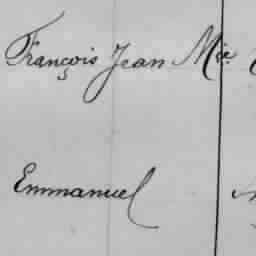 François Jean Mie
Emmanuel